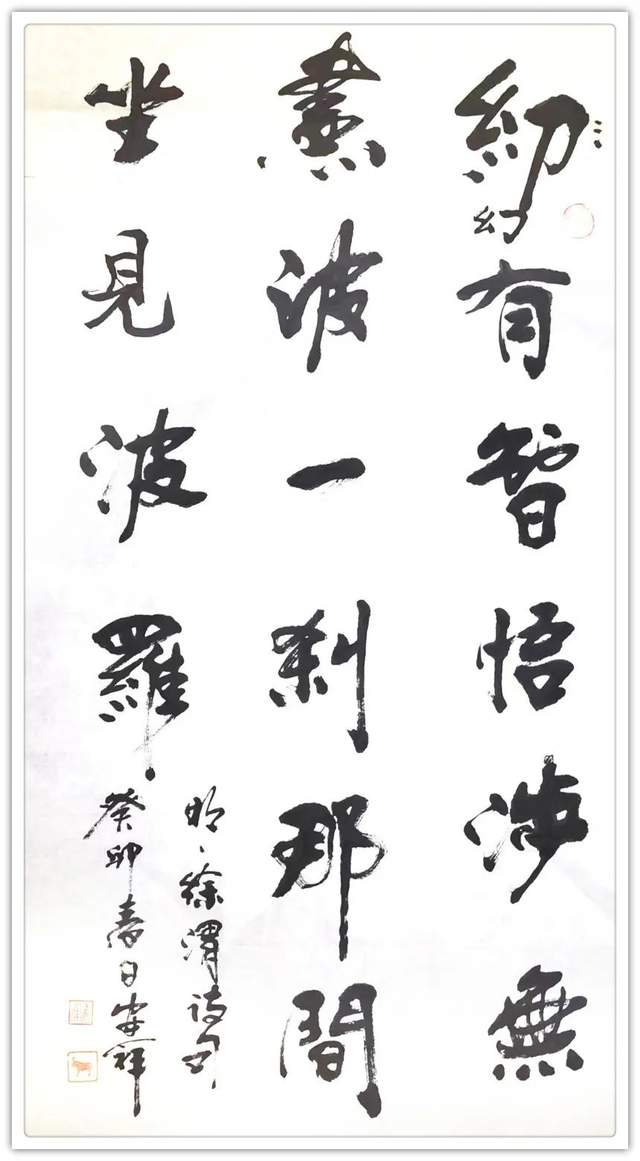 紉幻有智悟涉無
盡波一刹那間
坐見波羅
明、徐渭詩句
癸卯春日安祥